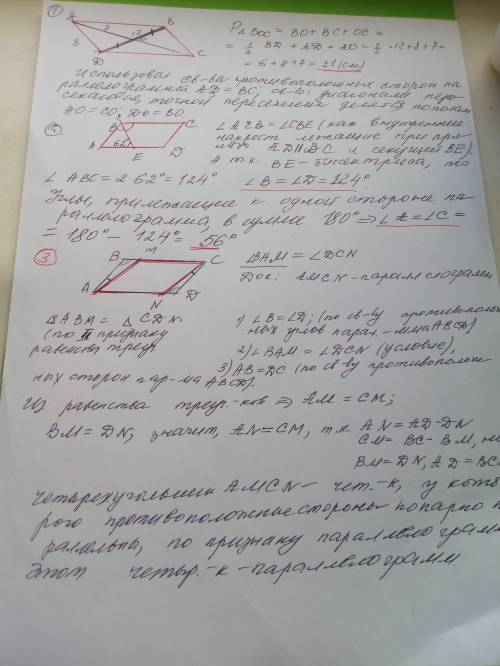 ①
A
B
P△BOC = BO + BC + OC =
7
12
= 1/2 BD + AD + AO = 1/2 · 12 + 8 + 7 =
8
D
C
= 6 + 8 + 7 = 21 (см)
Используя св-ва противоположных сторон па-
раллелограмма AD = BC; св-во: диагонали пере-
секаются, точкой пересечения делятся пополам
AO = CO; DO = BO.
②
B
C
∠AEB = ∠CBE (как внутренние
накрест лежащие при пря-
мых AD || BC и секущей BE).
A
62°
E
D
А т.к. BE – биссектриса, то
∠ABC = 2·62° = 124°.
∠B = ∠D = 124°
Углы, прилежащие к одной стороне па-
раллелограмма, в сумме 180° ⇒ ∠A = ∠C =
= 180° – 124° = 56°
③
B
M
C
∠BAM = ∠DCN
Док: AMCN – параллелограмм
A
N
D
△ABM = △CDN.
1) ∠B = ∠D; (по св-ву противополож-
(по II признаку
ных углов парал.-мма ABCD)
равенства треуг.
2) ∠BAM = ∠DCN (условие),
3) AB = DC (по св-ву противополож-
ных сторон пар-ма ABCD).
Из равенства треуг.-ков ⇒ AM = CM;
BM = DN, значит, AN = CM, т.к AN = AD – DN
CM = BC – BM, но
BM = DN, AD = BC
Четырехугольник AMCN – чет.-к, у кото-
рого противоположные стороны попарно па-
раллельны, по признаку параллелограмма
этот четыр.-к – параллелограмм.